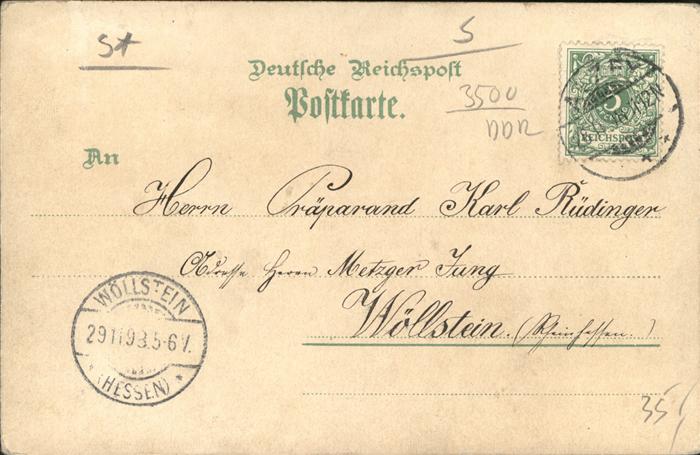 St
5
Deutsche Reichspost
Postkarte.
3500
DDR
5
REICHSPOST
An
Herrn Präparand Karl Rüdinger
Adresse Herrn Metzger Jung
Wöllstein. (Rheinhessen.)
WÖLLSTEIN
29 11 98.5-6 V.
* (HESSEN) *
35